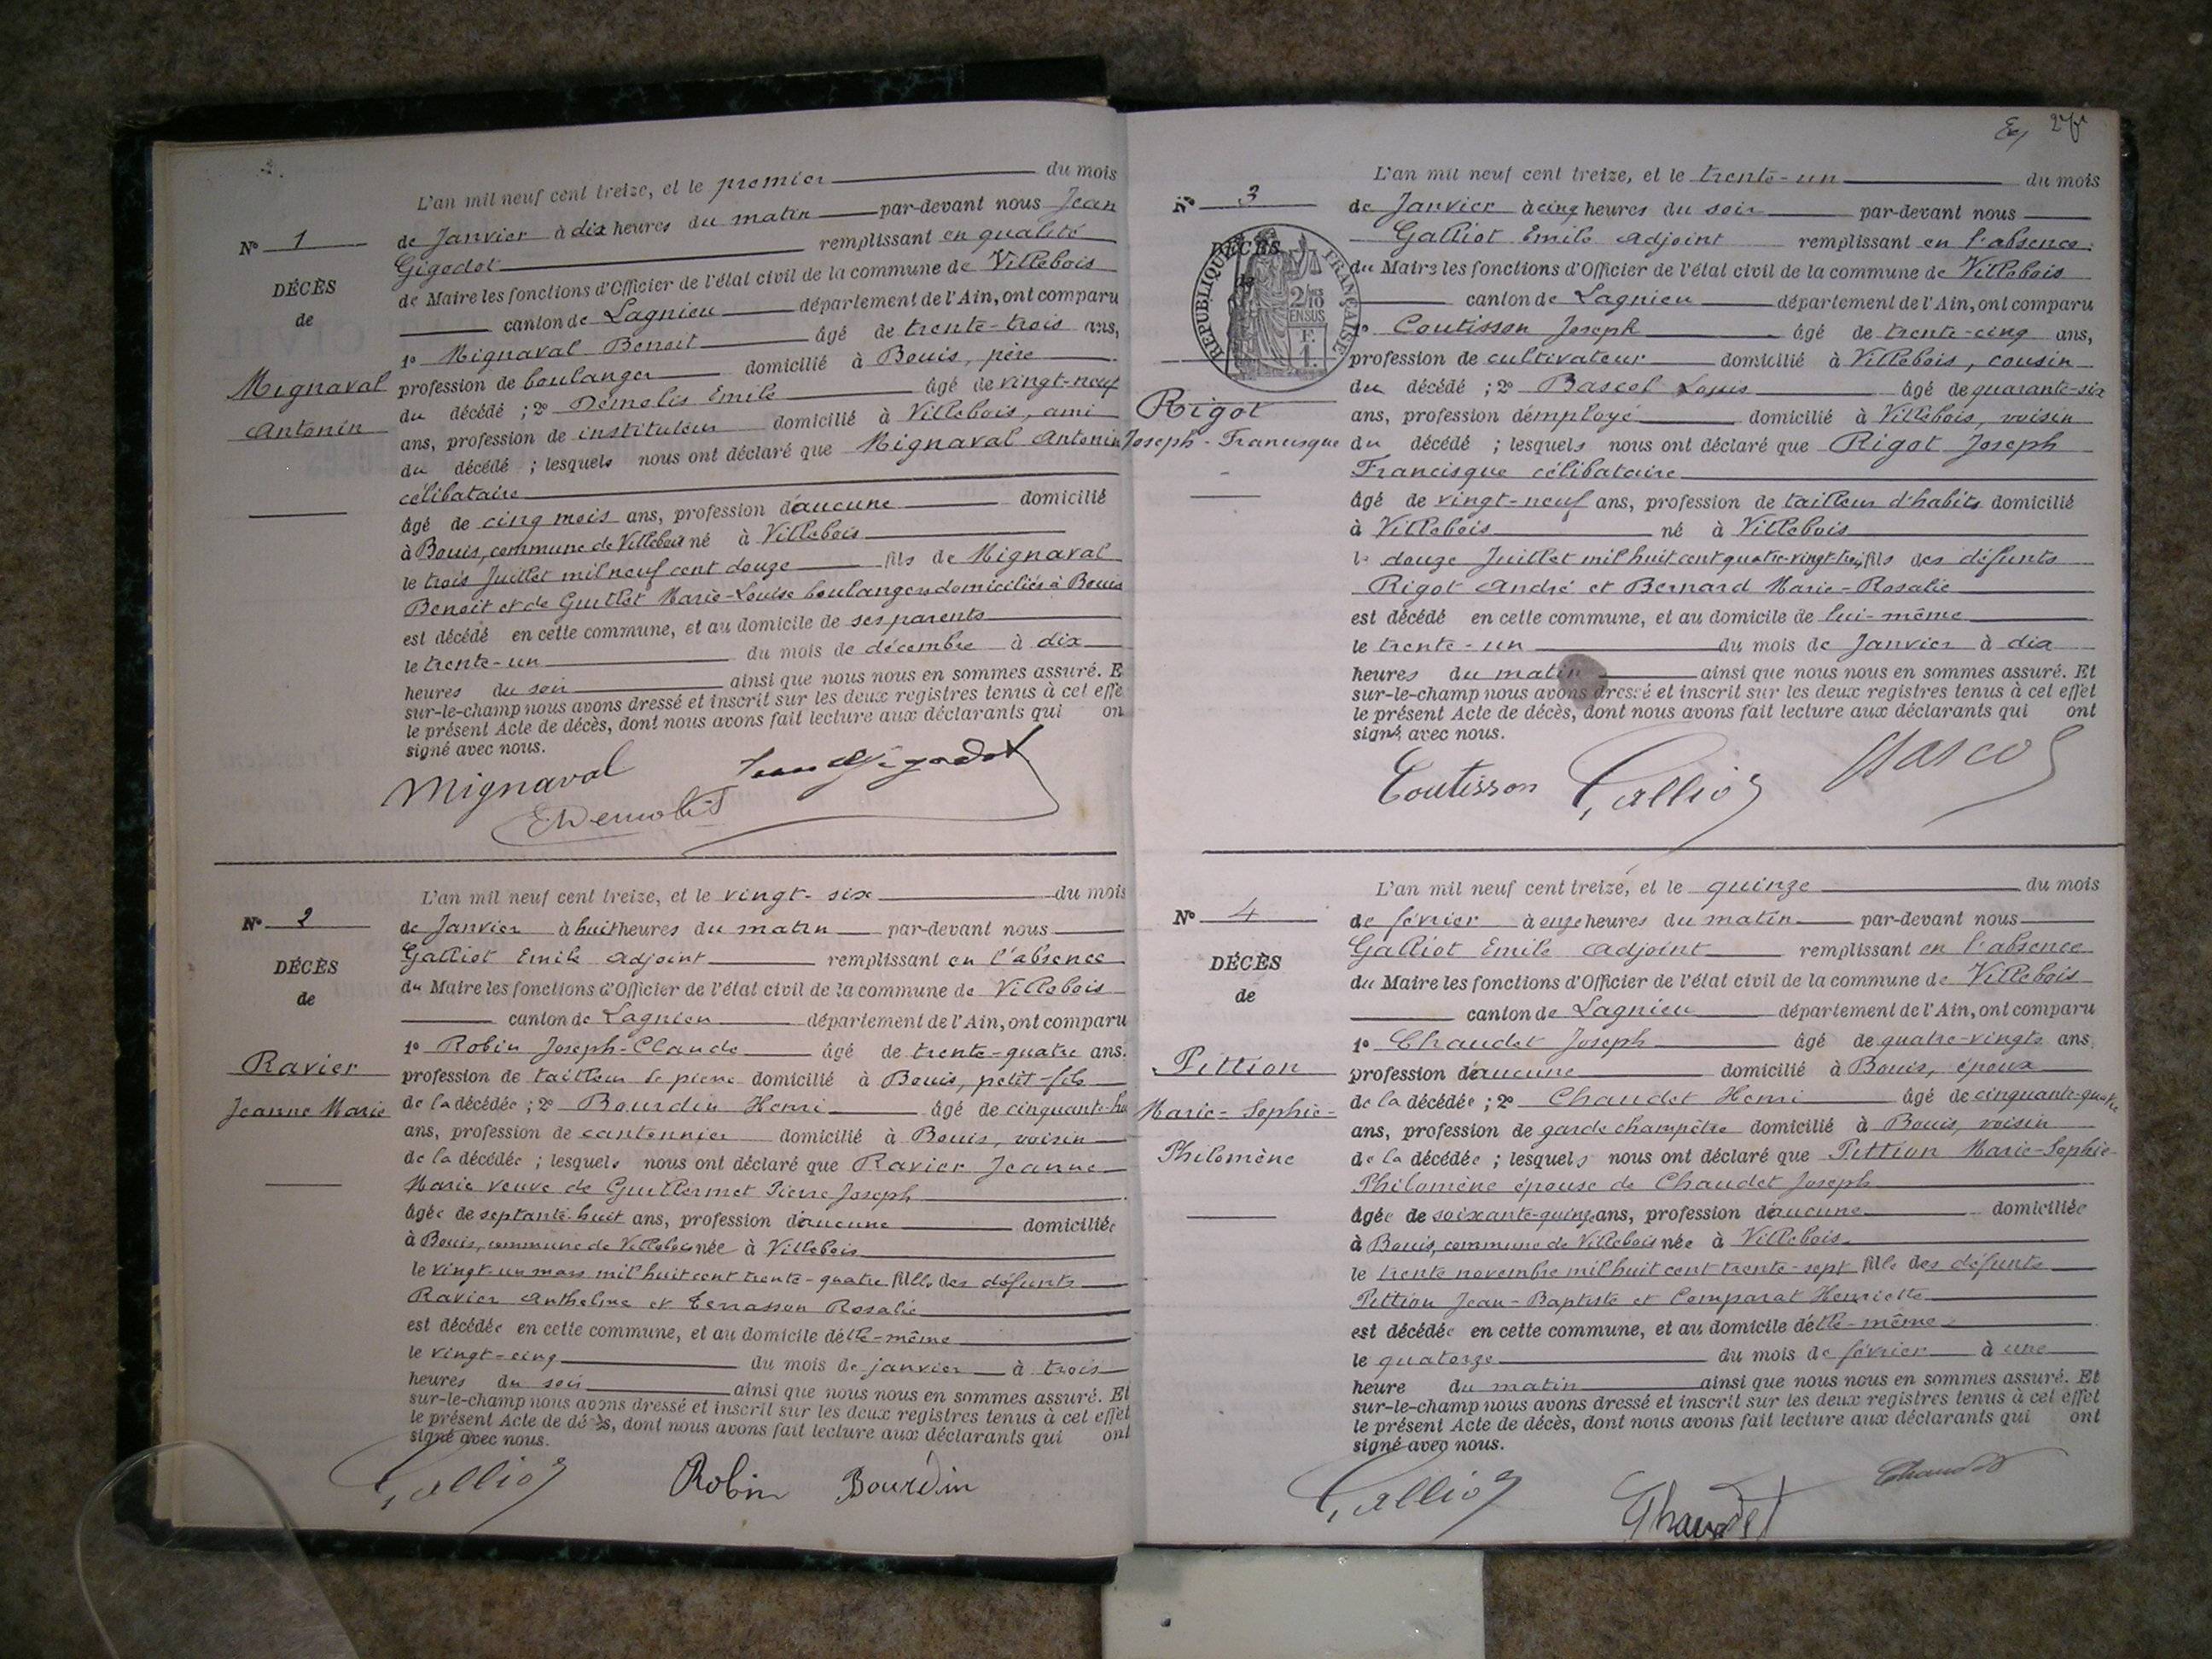 L'an mil neuf cent treize, et le premier du mois
de Janvier à dix heures du matin par-devant nous Jean
Gigodot remplissant en qualité
de Maire les fonctions d'Officier de l'état civil de la commune de Villebois
canton de Lagnieu département de l'Ain, ont comparu
1° Mignaval Benoit âgé de trente-trois ans,
profession de boulanger domicilié à Bouis, père
du décédé ; 2° Démolis Emile âgé de vingt-neuf
ans, profession de instituteur domicilié à Villebois, ami
du décédé ; lesquels nous ont déclaré que Mignaval Antonin
célibataire
âgé de cinq mois ans, profession d'aucune domicilié
à Bouis, commune de Villebois né à Villebois
le trois Juillet mil neuf cent douze fils de Mignaval
Benoit et de Guillot Marie-Louise boulangers domiciliés à Bouis
est décédé en cette commune, et au domicile de ses parents
le trente-un du mois de décembre à dix
heures du soir ainsi que nous nous en sommes assuré. E
sur-le-champ nous avons dressé et inscrit sur les deux registres tenus à cet effe
le présent Acte de décès, dont nous avons fait lecture aux déclarants qui on
signé avec nous.
Mignaval Jean Gigodot
EDemolis
N° 1
DÉCÈS
de
Mignaval
Antonin
L'an mil neuf cent treize, et le vingt-six du mois
de Janvier à huit heures du matin par-devant nous
Galliot Emile adjoint remplissant en l'absence
du Maire les fonctions d'Officier de l'état civil de la commune de Villebois
canton de Lagnieu département de l'Ain, ont comparu
1° Robin Joseph-Claude âgé de trente-quatre ans.
profession de tailleur de pierre domicilié à Bouis, petit-fils
de la décédée ; 2° Bourdin Henri âgé de cinquante-hu
ans, profession de cantonnier domicilié à Bouis, voisin
de la décédée ; lesquels nous ont déclaré que Ravier Jeanne
Marie veuve de Guillermet Pierre Joseph
âgée de septante-huit ans, profession d'aucune domiciliée
à Bouis, commune de Villebois née à Villebois
le vingt-un mars mil huit cent trente-quatre fille des défunts
Ravier Anthelme et Terrasson Rosalie
est décédée en cette commune, et au domicile d'elle-même
le vingt-cinq du mois de janvier à trois
heures du soir ainsi que nous nous en sommes assuré. Et
sur-le-champ nous avons dressé et inscrit sur les deux registres tenus à cet effet
le présent Acte de décès, dont nous avons fait lecture aux déclarants qui ont
signé avec nous.
Galliot Robin Bourdin
N° 2
DÉCÈS
de
Ravier
Jeanne Marie
L'an mil neuf cent treize, et le trente-un du mois
de Janvier à cinq heures du soir par-devant nous
Galliot Emile adjoint remplissant en l'absence
du Maire les fonctions d'Officier de l'état civil de la commune de Villebois
canton de Lagnieu département de l'Ain, ont comparu
1° Coutisson Joseph âgé de trente-cinq ans,
profession de cultivateur domicilié à Villebois, cousin
du décédé ; 2° Bascol Louis âgé de quarante-six
ans, profession d'employé domicilié à Villebois, voisin
du décédé ; lesquels nous ont déclaré que Rigot Joseph
Francisque célibataire
âgé de vingt-neuf ans, profession de tailleur d'habits domicilié
à Villebois né à Villebois
le douze Juillet mil huit cent quatre-vingt-trois fils des défunts
Rigot André et Bernard Marie-Rosalie
est décédé en cette commune, et au domicile de lui-même
le trente-un du mois de Janvier à dix
heures du matin ainsi que nous nous en sommes assuré. Et
sur-le-champ nous avons dressé et inscrit sur les deux registres tenus à cet effet
le présent Acte de décès, dont nous avons fait lecture aux déclarants qui ont
signé avec nous.
Coutisson Galliot Bascol
N° 3
DÉCÈS
de
RÉPUBLIQUE FRANÇAISE
2/10
EN SUS
F.
1.
Rigot
Joseph-Francisque
L'an mil neuf cent treize, et le quinze du mois
de février à onze heures du matin par-devant nous
Galliot Emile adjoint remplissant en l'absence
du Maire les fonctions d'Officier de l'état civil de la commune de Villebois
canton de Lagnieu département de l'Ain, ont comparu
1° Chaudet Joseph âgé de quatre-vingts ans,
profession d'aucune domicilié à Bouis, époux
de la décédée ; 2° Chaudet Henri âgé de cinquante-quatre
ans, profession de garde champêtre domicilié à Bouis, voisin
de la décédée ; lesquels nous ont déclaré que Pittion Marie-Sophie-
Philomène épouse de Chaudet Joseph
âgée de soixante-quinze ans, profession d'aucune domiciliée
à Bouis, commune de Villebois née à Villebois
le trente novembre mil huit cent trente-sept fille des défunts
Pittion Jean-Baptiste et Comparat Henriette
est décédée en cette commune, et au domicile d'elle-même
le quatorze du mois de février à une
heure du matin ainsi que nous nous en sommes assuré. Et
sur-le-champ nous avons dressé et inscrit sur les deux registres tenus à cet effet
le présent Acte de décès, dont nous avons fait lecture aux déclarants qui ont
signé avec nous.
Galliot Chaudet Chaudet
N° 4
DÉCÈS
de
Pittion
Marie-Sophie-
Philomène